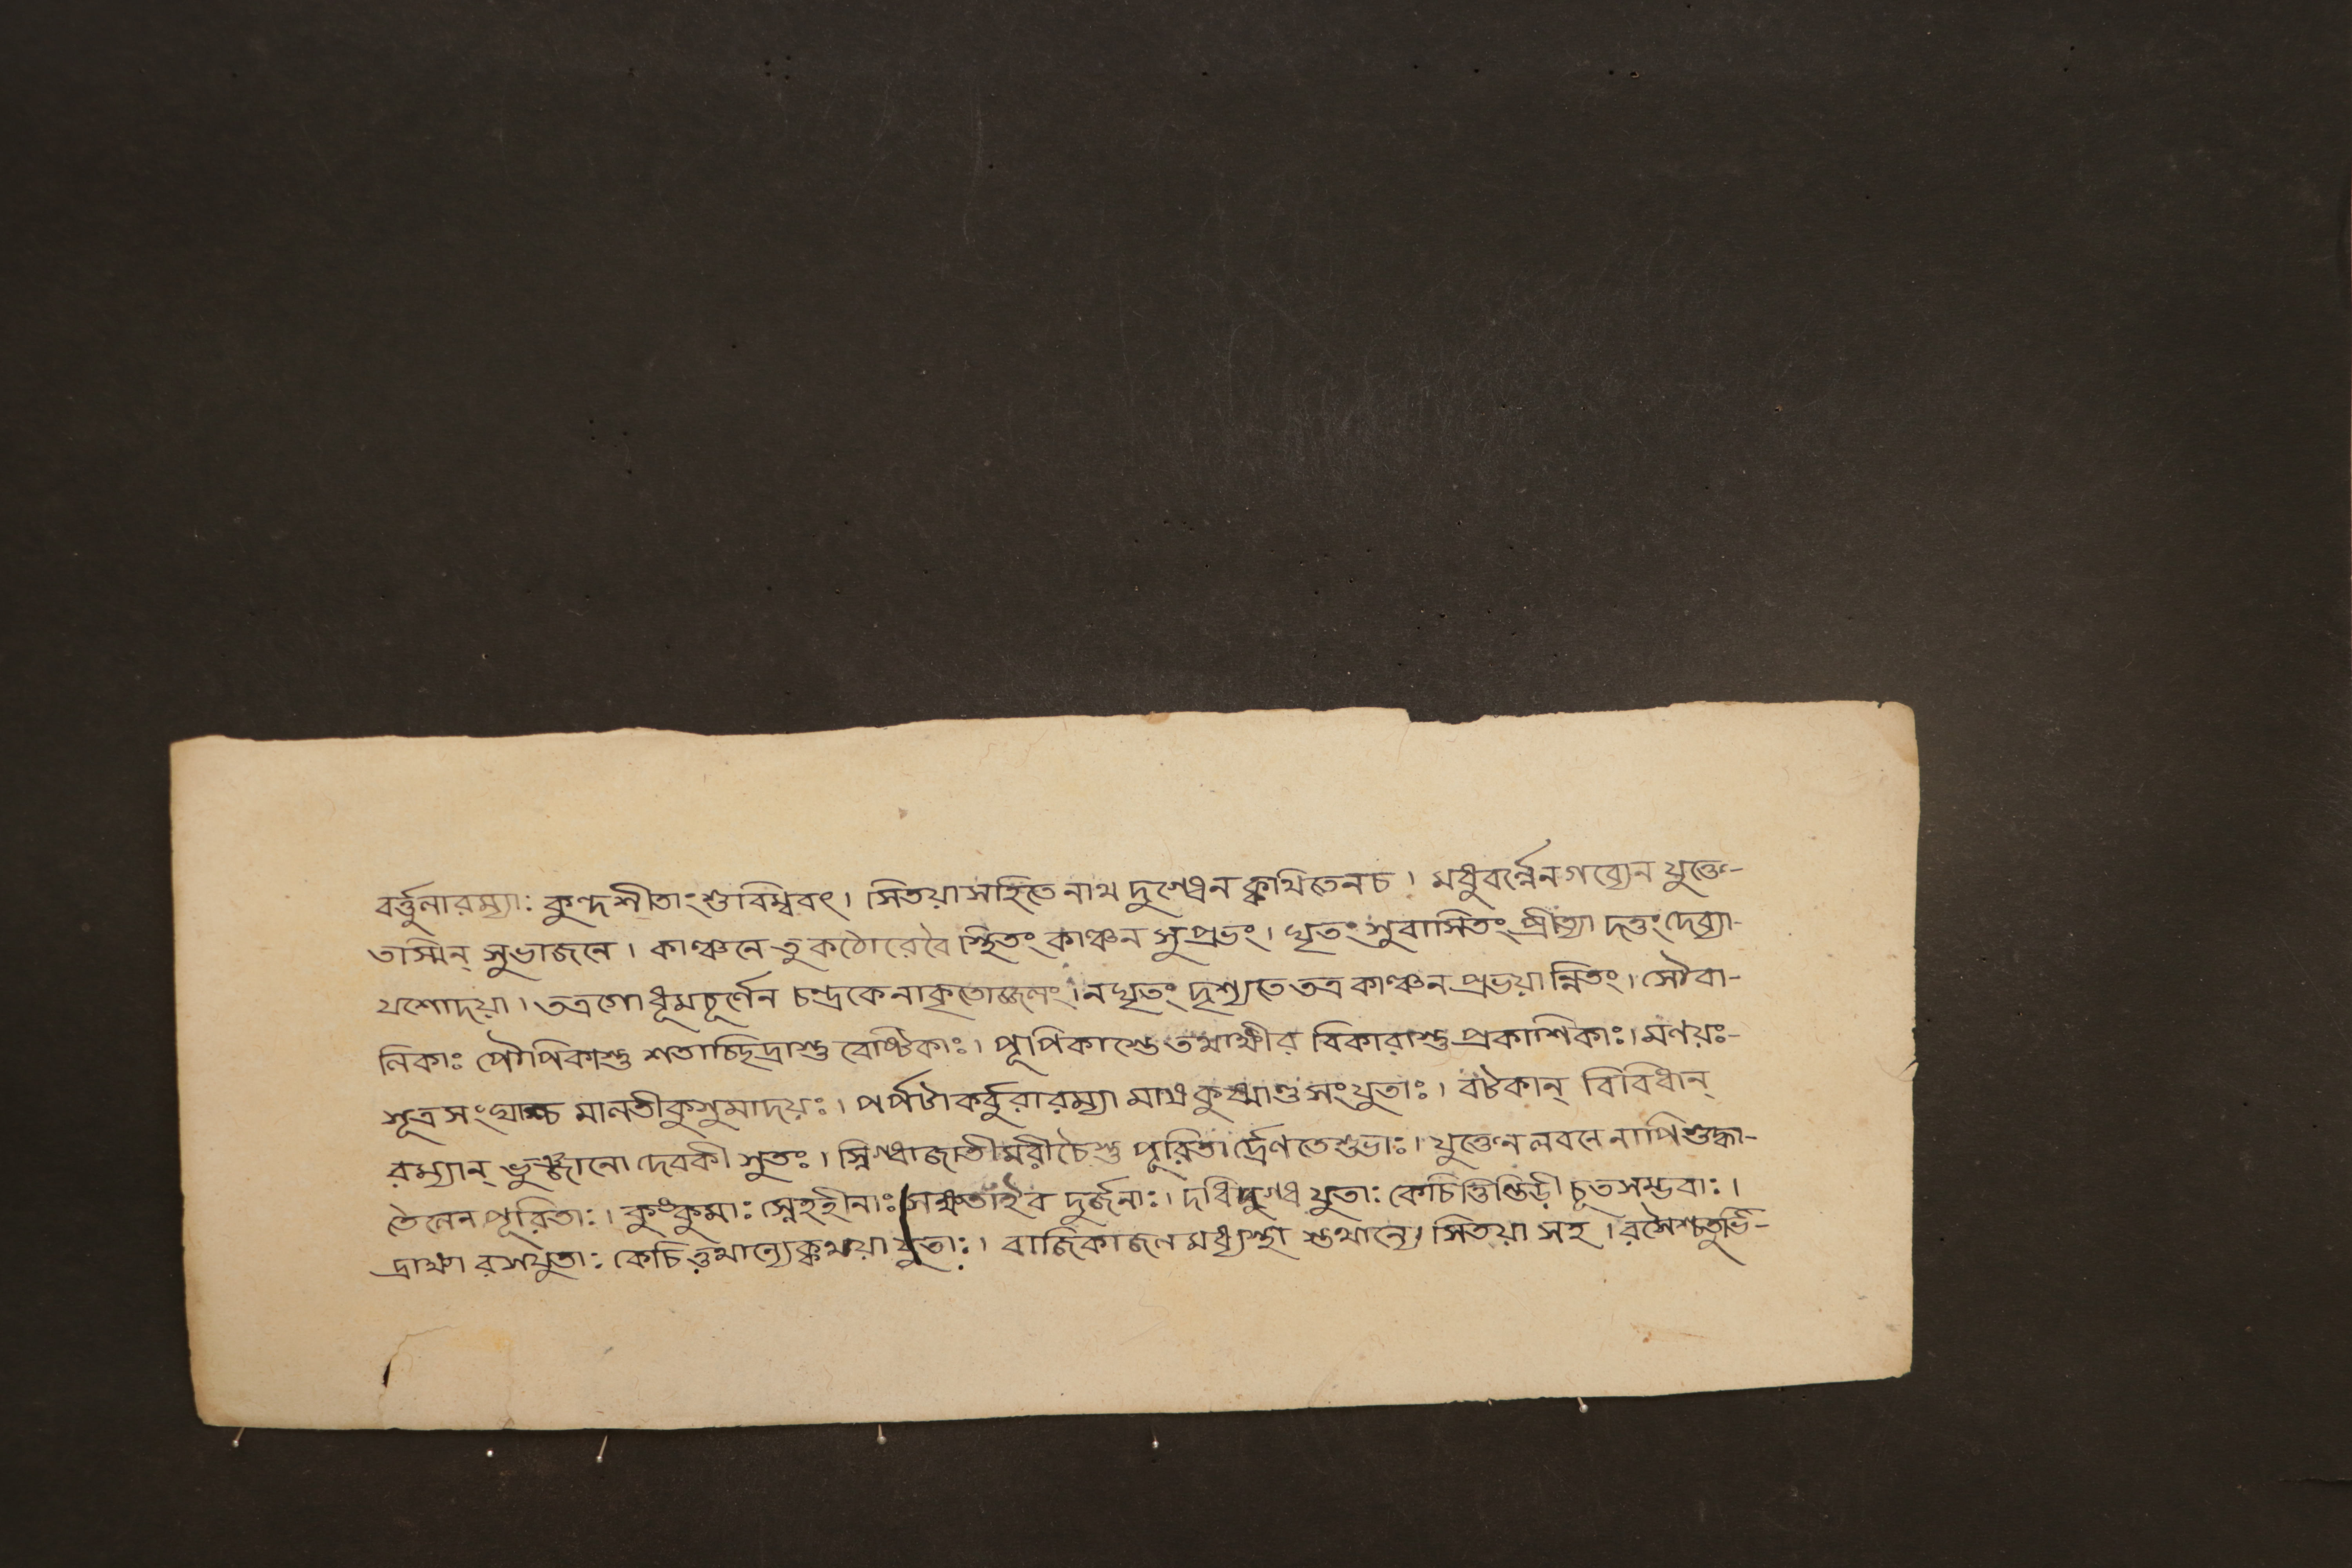 বর্ত্তুলারম্যাঃ কুন্দশীতাংশুবিম্ববৎ। সিতয়াসহিতে নাথ দুগ্ধেন ক্কথিতেনচ। মধুবর্ণ্ণেনগব্যেন যুক্তে-
তাস্মিন্ সুভাজনে। কাঞ্চনে তু কঠোরেবৈ স্থিতং কাঞ্চন সুপ্রভং। ঘৃতং সুবাসিতং প্রীত্যা দত্তং দেব্যা-
যশোদয়া। তত্রগোধূমচূর্ণেন চন্দ্রকেনাকৃতোজ্জলং। নঘৃতং দৃশ্যতেতত্র কাঞ্চনপ্রভয়ান্নিতং। সৌবা-
লিকাঃ পৌপিকাশু শতাচ্ছিদ্রাশু বেষ্টিকাঃ। পূপিকাশ্তেতথাক্ষীর বিকারাশু প্রকাশিকাঃ। মণয়ঃ-
সূত্রসংঘাশ্চ মালতীকুসুমাদয়ঃ। পর্পটাকর্বুরারম্যা মাথকুষ্মাণ্ড সংযুতাঃ। বটকান্ বিবিধান্
রম্যান্ ভুঞ্জানো দেবকী সুতঃ। স্নিগ্ধাজাতীমরীচৈশু পূরিতা র্দ্রেণতেশুভাঃ। যুক্তেন লবনে নাপিশুদ্ধা-
তৈলেন পূরিতাঃ। কুঙ্কুমাঃ স্নেহহীনাঃ সক্ষতাইব দুর্জনাঃ। দধিদুগ্ধ যুতাঃ কেচিত্তিন্তিড়ী চূতসম্ভবাঃ।
দ্রাক্ষা রসযুতাঃ কেচিত্তথান্যে যুতাঃ। বাজিকাজল মধ্যস্থা স্তথান্যে। সিতয়া সহ। রসৈশ্চতুর্ভি-